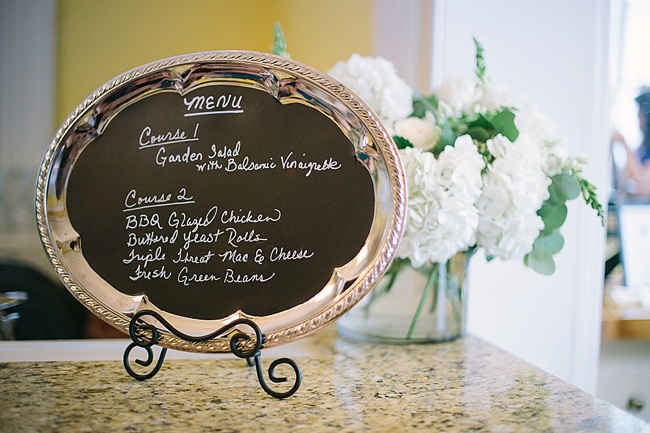 MENU
Course 1
Garden Salad
with Balsamic Vinaigrette
Course 2
BBQ Glazed Chicken
Buttered Yeast Rolls
Triple Threat Mac & Cheese
Fresh Green Beans